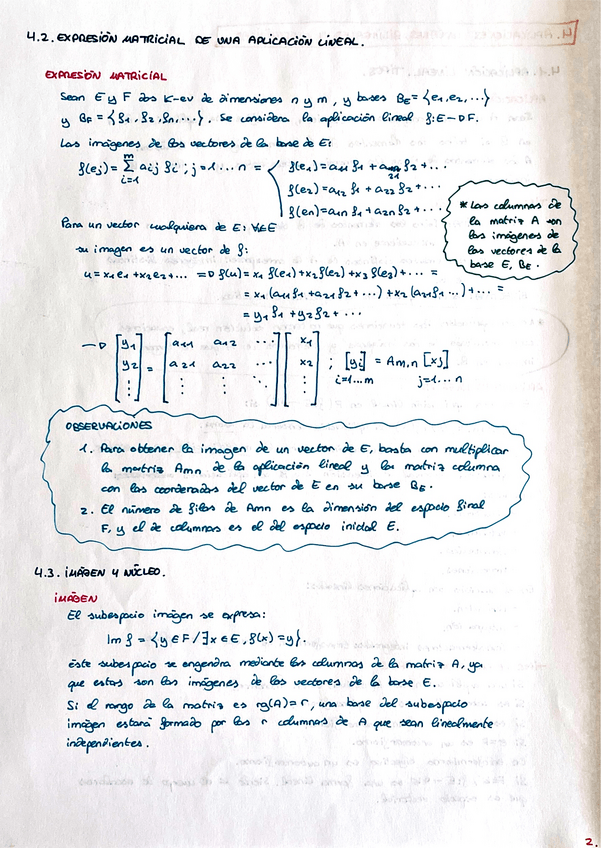 4.2. EXPRESIÓN MATRICIAL DE UNA APLICACIÓN LINEAL.
EXPRESIÓN MATRICIAL
Sean E y F dos K-ev de dimensiones n y m, y bases BE = {e1, e2, ...}
y BF = {f1, f2, fn, ...}. Se considera la aplicación lineal f: E → F.
Las imágenes de los vectores de la base de E:
f(ej) = Σ aij fi ; j = 1 ... n = { f(e1) = a11 f1 + a21 f2 + ...
i=1 m
f(e2) = a12 f1 + a22 f2 + ...
f(en) = a1n f1 + a2n f2 + ...
* Las columnas de
la matriz A son
las imágenes de
los vectores de la
base E, BE.
Para un vector cualquiera de E: ∀∈E
su imagen es un vector de f:
u = x1e1 + x2e2 + ... ⇒ f(u) = x1 f(e1) + x2 f(e2) + x3 f(e3) + ... =
= x1 (a11 f1 + a21 f2 + ...) + x2 (a21 f1 ...) + ... =
= y1 f1 + y2 f2 + ...
→ [y1 y2 ⋮] = [a11 a12 ... a21 a22 ... ⋮ ⋮ ⋱] [x1 x2 ⋮] ; [yi] = Am,n [xj]
i=1...m j=1...n
OBSERVACIONES
1. Para obtener la imagen de un vector de E, basta con multiplicar
la matriz Amn de la aplicación lineal y la matriz columna
con las coordenadas del vector de E en su base BE.
2. El número de filas de Amn es la dimensión del espacio final
F, y el de columnas es el del espacio inicial E.
4.3. IMÁGEN Y NÚCLEO.
IMÁGEN
El subespacio imágen se expresa:
Im f = {y ∈ F / ∃x ∈ E, f(x) = y}.
Este subespacio se engendra mediante las columnas de la matriz A, ya
que estas son las imágenes de los vectores de la base E.
Si el rango de la matriz es rg(A) = r, una base del subespacio
imágen estará formado por las r columnas de A que sean linealmente
independientes.
2.